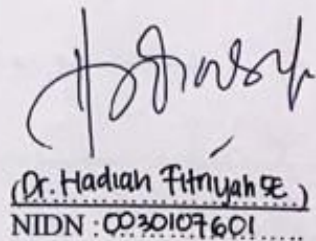 (Dr. Hadiah Fitriyah SE)
NIDN : 0030107601